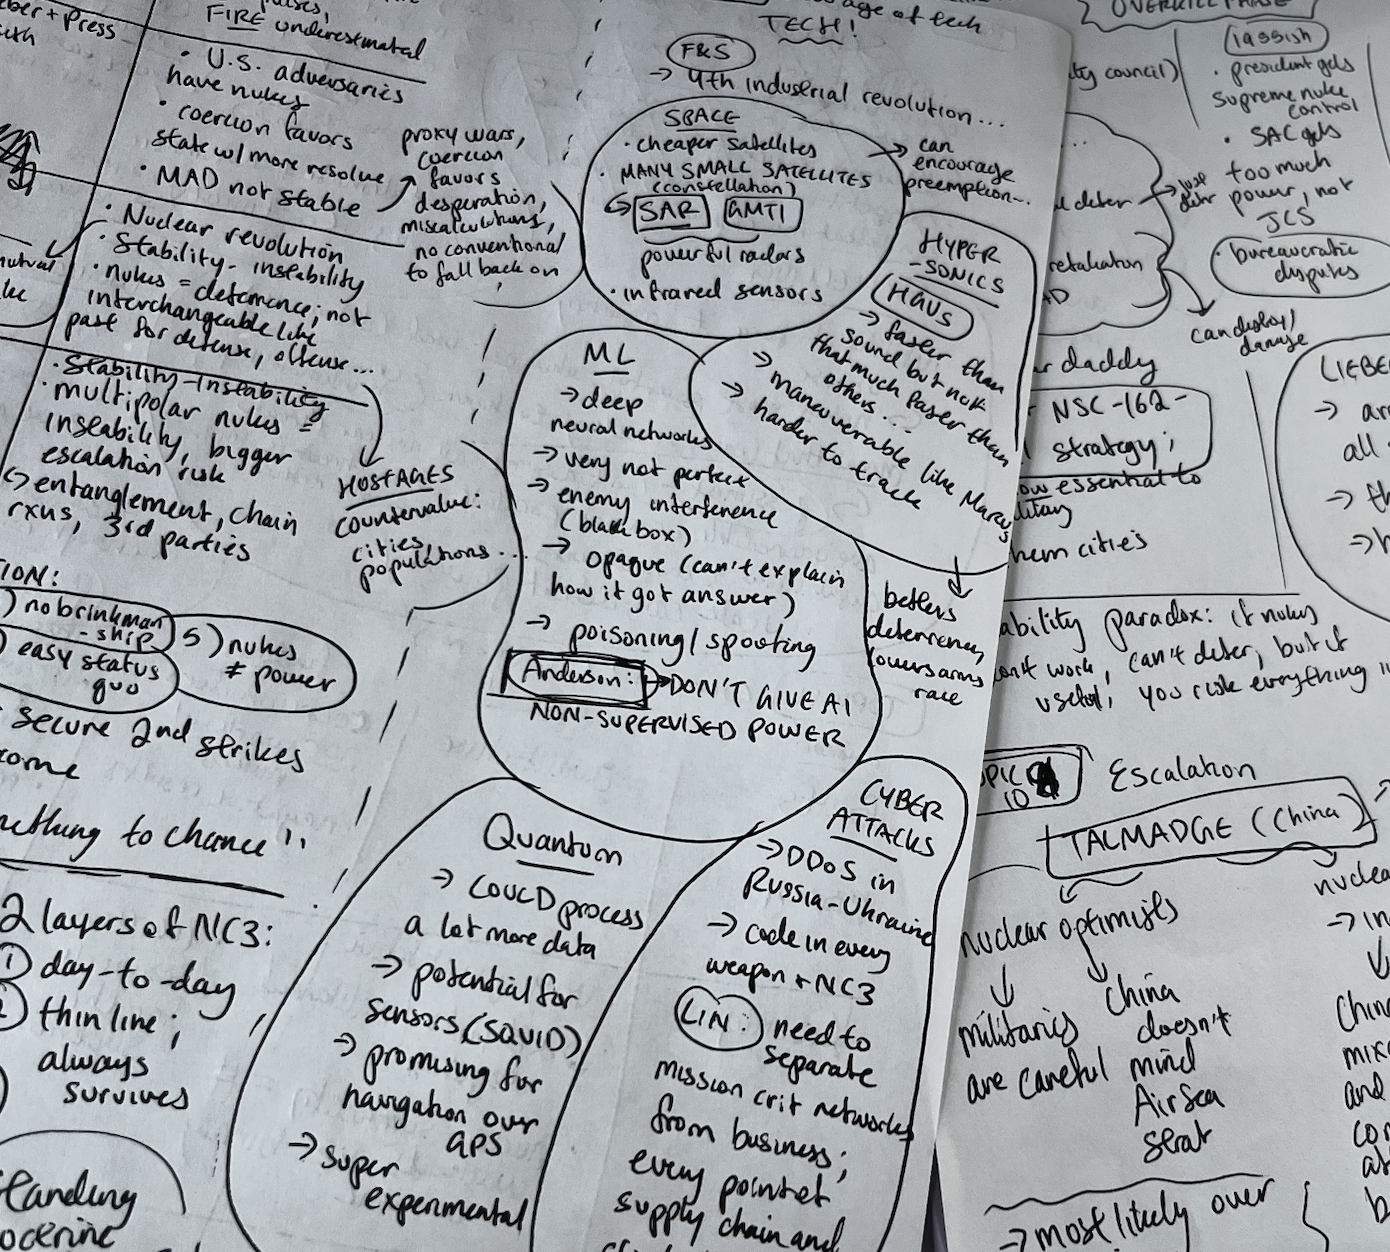 ber + Press
FIRE underestimated
• U.S. adversaries
have nukes
• coercion favors
state w/ more resolve
• MAD not stable
proxy wars,
coercion
favors
desperation,
miscalculations,
no conventional
to fall back on
• Nuclear revolution
• Stability-instability
• nukes = deterrence; not
interchangeable like
past for defense, offense...
• Stability-Instability
• multipolar nukes =
instability, bigger
escalation risk
↳ entanglement, chain
rxns, 3rd parties
HOSTAGES
countervalue:
cities,
populations...
TION:
) no brinkman
-ship
) easy status
quo
5) nukes
≠ power
secure 2nd strikes
come
mething to chance"
2 layers of NC3:
① day-to-day
② thin line;
always
survives
age of tech
TECH!
F&S
→ 4th industrial revolution...
SPACE
• cheaper satellites
• MANY SMALL SATELLITES
(constellation)
↳ SAR GMTI
powerful radars
• infrared sensors
→ can
encourage
preemption...
HYPER
-SONICS
HGVS
→ faster than
sound but not
that much faster than
others...
→ maneuverable like Marvs
→ harder to track
betters
deterrence,
lowers arms
race
ML
→ deep
neural networks
→ very not perfect
→ enemy interference
(black box)
→ opaque (can't explain
how it got answer)
→ poisoning/spoofing
Anderson: → DON'T GIVE AI
NON-SUPERVISED POWER
Quantum
→ COULD process
a lot more data
→ potential for
sensors (SQUID)
→ promising for
navigation over
GPS
→ super
experimental
CYBER
ATTACKS
→ DDoS in
Russia-Ukraine
→ code in every
weapon + NC3
LIN: need to
separate
mission crit networks
from business;
every point of
supply chain and
OVERKILL PHASE
ty council)
• president gets
supreme nuke
control
• SAC gets
too much
power, not
JCS
• bureaucratic
disputes
deter
retaliation
can destroy/
damage
daddy
NSC-162-
strategy;
essential to
litary
hem cities
LIEBE
→ ar
all
ability paradox: if nukes
on't work, can't deter, but if
useful, you risk everything
PIC
10
Escalation
TALMADGE (China)
nuclear optimists
↓
militaries
are careful
China
doesn't
mind
AirSea
strat
nuclea
→ in
Chin
mixe
and
→ most likely over